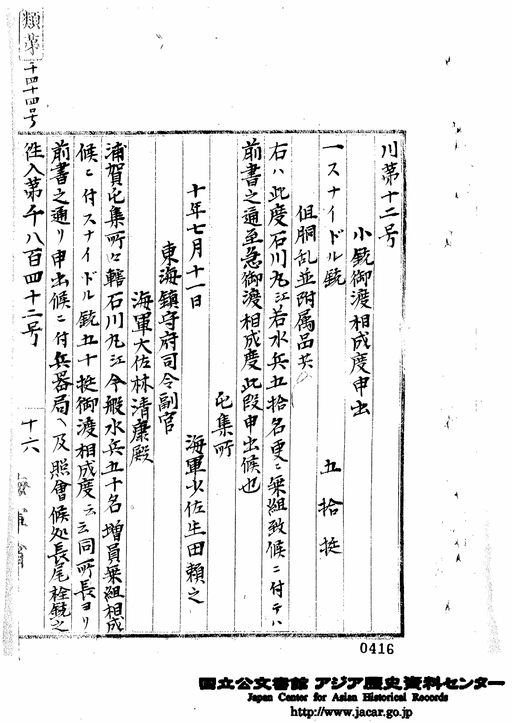 川第十二号
小銃御渡相成度申出
一スナイドル銃 五拾挺
但胴乱並附属品共
右ハ此度石川丸江若水兵五拾名更ニ乗組致候ニ付テハ
前書之通至急御渡相成度此段申出候也
屯集所
十年七月十一日 海軍少佐生田頼之
東海鎮守府司令副官
海軍大佐林清康殿
浦賀屯集所 轄石川丸江今般水兵五十名増員乗組相成
候ニ付スナイドル銃五十挺御渡相成度云云同所長ヨリ
前書之通リ申出候ニ付兵器局ヘ及照會候処長尾栓銃之
往入第千八百四十二号
十六
類第
千四十四号
0416
国立公文書館 アジア歴史資料センター
Japan Center for Asian Historical Records
http://www.jacar.go.jp